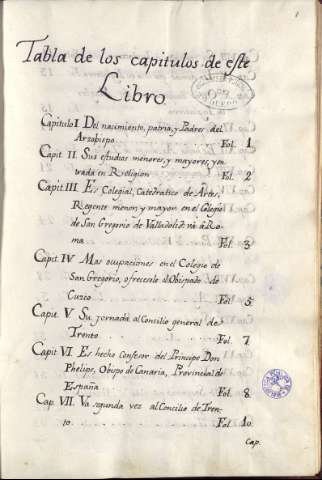 1
Tabla de los capitulos de este
Libro
Capitulo I Del nacimiento, patria, y Padres del
Arzobispo Fol. 1
Capit. II. Sus estudios menores, y mayores, y en
trada en Religion Fol. 2
Capit. III. Es Colegial, Catedratico de Artes,
Regente menor, y mayor en el Colegio
de San Gregorio de Valladolid và à Ro
ma Fol. 3
Capit. IV Mas ocupaciones en el Colegio de
San Gregorio, ofrecesele el Obispado de
Cuzco Fol. 5
Capit. V Su jornada al Concilio general de
Trento Fol. 7
Capit. VI Es hecho Confesor del Principe Don
Phelipe, Obispo de Canaria, Provincial de
España Fol. 8
Cap. VII. Va segunda vez al Concilio de Tren-
to Fol. 10
Cap.